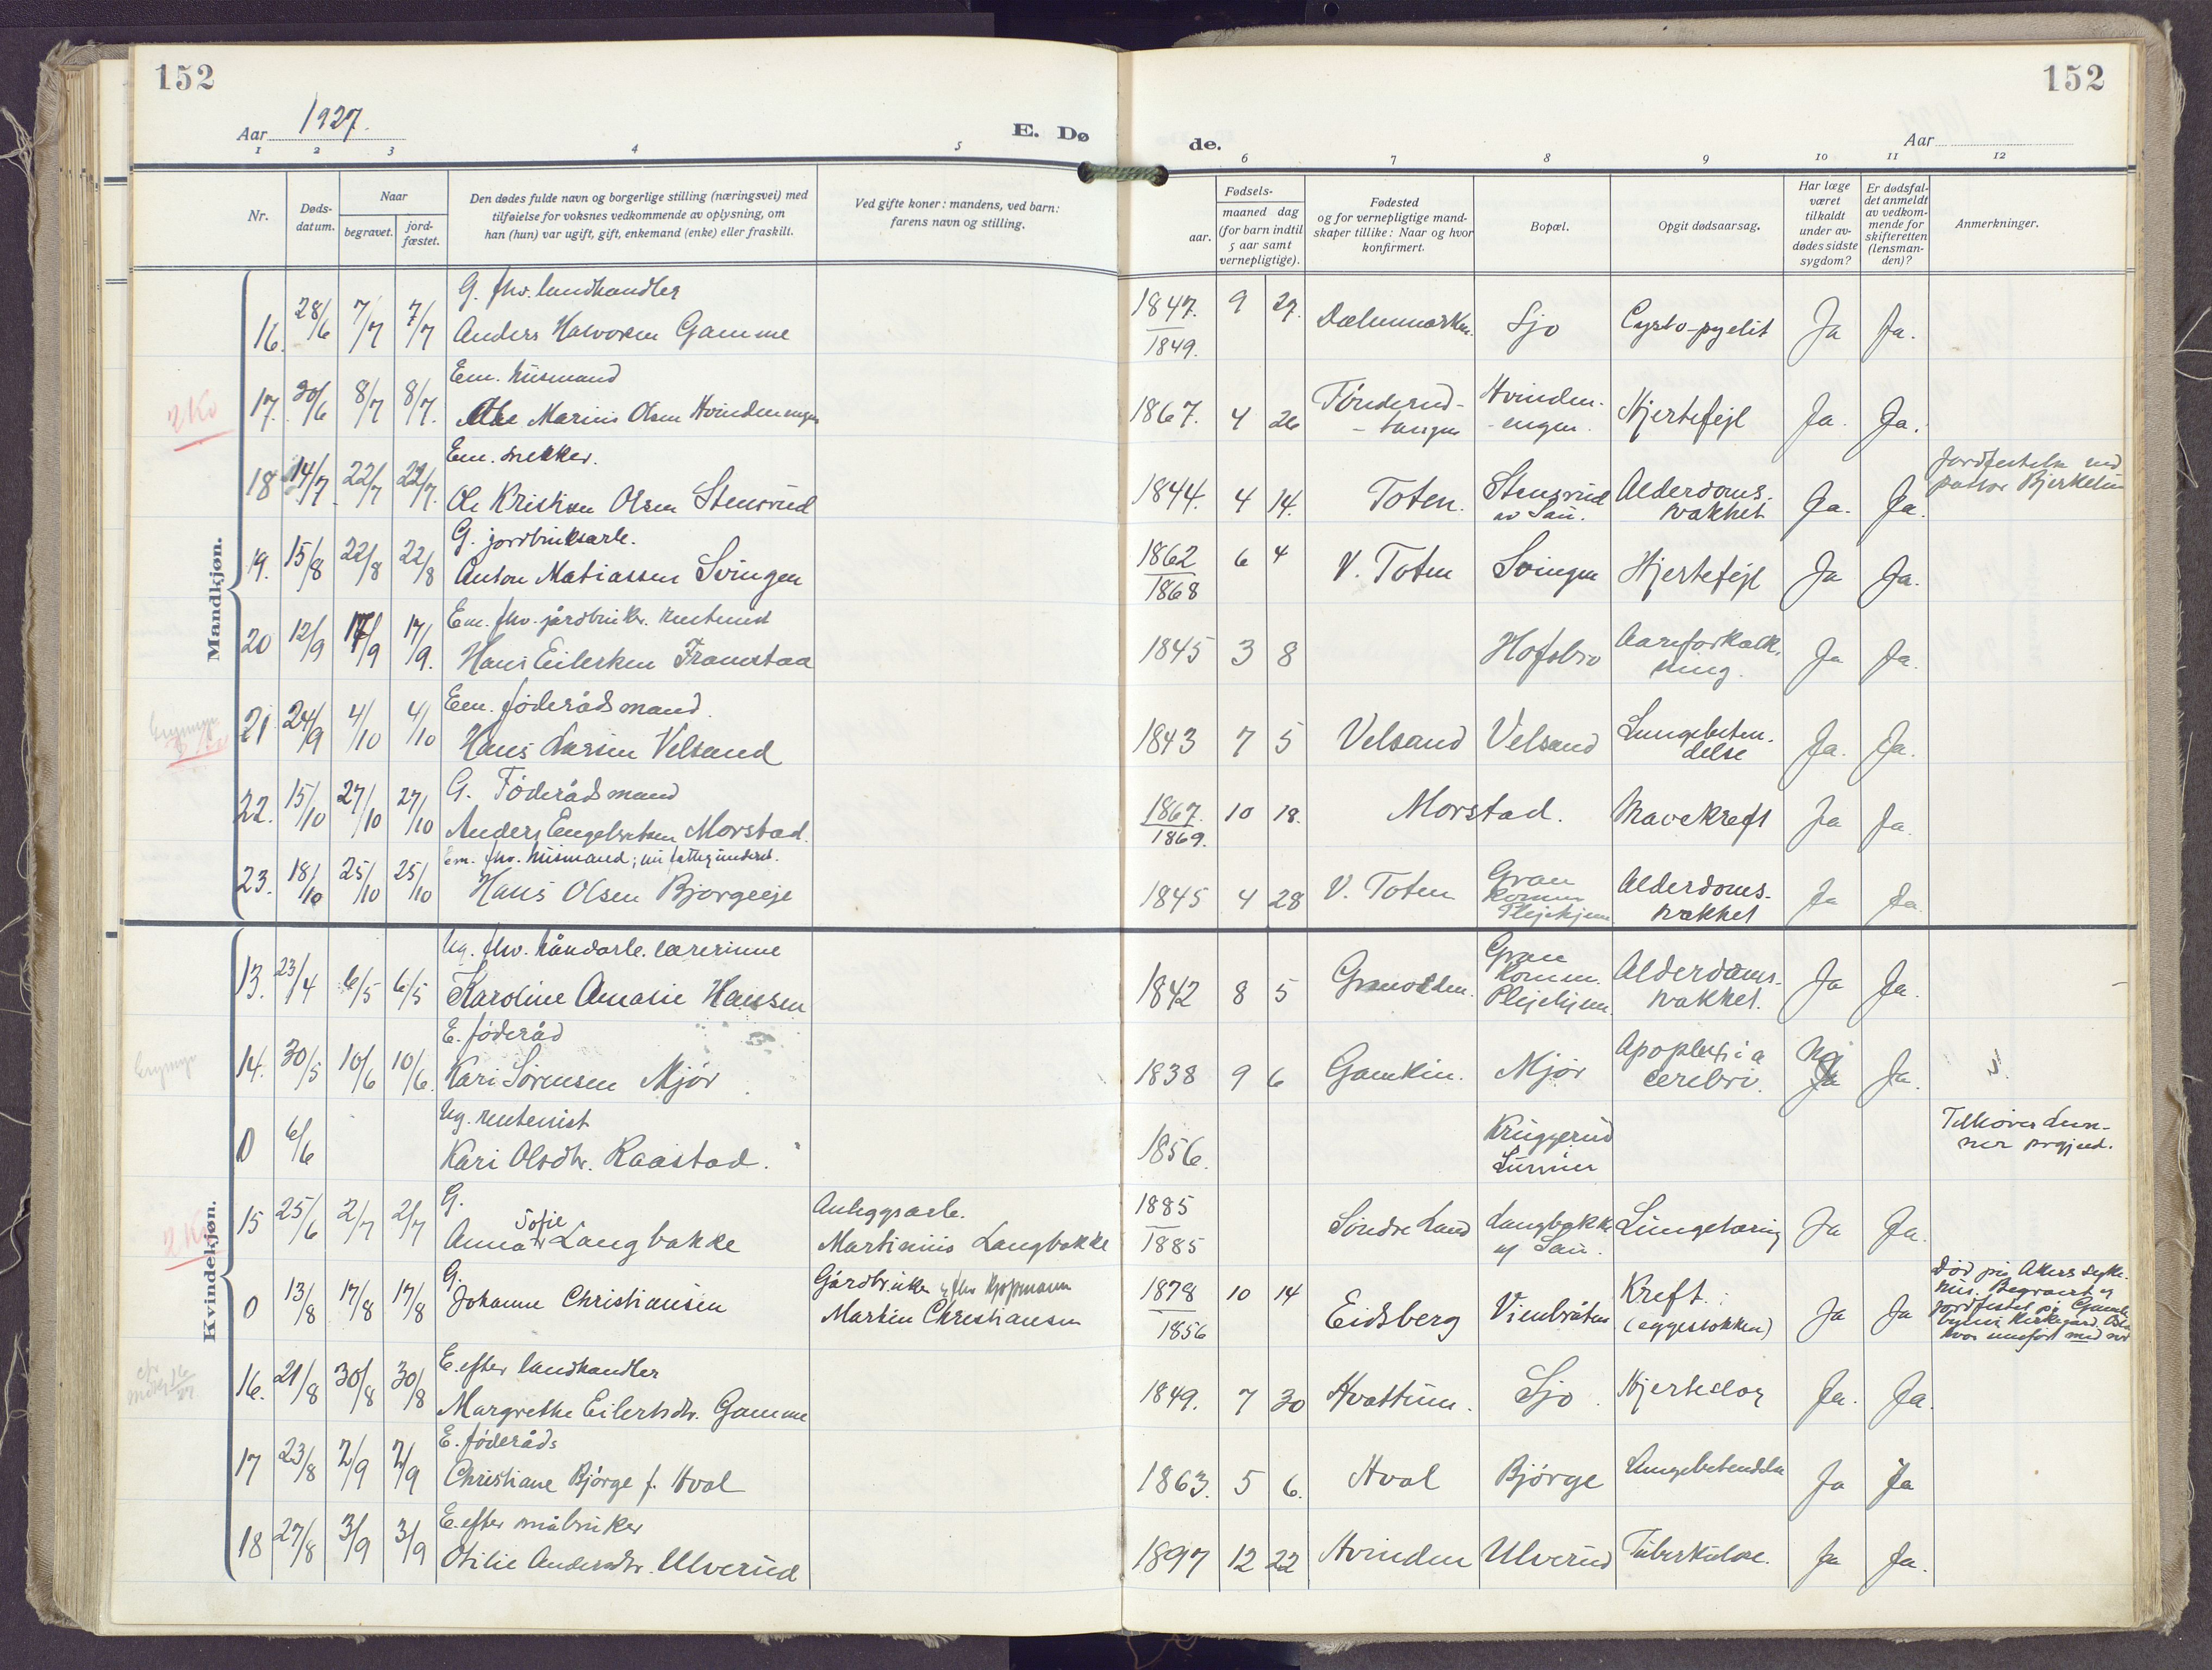 152
152
Aar 1927.
E. Dø
de.
Aar
1 2 3 4 5
6 7 8 9 10 11 12
Nr.
Døds-
datum.
Naar
begravet.
jord-
fæstet.
Den dødes fulde navn og borgerlige stilling (næringsvei) med
tilføielse for voksnes vedkommende av oplysning, om
han (hun) var ugift, gift, enkemand (enke) eller fraskilt.
Ved gifte koner: mandens, ved barn:
farens navn og stilling.
Fødsels-
aar.
maaned dag
(for barn indtil
5 aar samt
vernepligtige).
Fødested
og for vernepligtige mand-
skaper tillike: Naar og hvor
konfirmert.
Bopæl.
Opgit dødsaarsag.
Har læge
været
tilkaldt
under av-
dødes sidste
sygdom?
Er dødsfal-
det anmeldt
av vedkom-
mende for
skifteretten
(lensman-
den)?
Anmerkninger.
Mandkjøn.
G. fhv. landhandler
16. 28/6 7/7 7/7 Anders Halvorsen Gamme 1847. 1849. 9 27. Sjo Cysto-pyelit Ja Ja.
2 Kv
Em. husmand
17. 30/6 8/7 8/7. Marius Olsen Hvindenengen 1867. 4 26 Tønderud- Hvinden- -engen. Hjertefejl Ja. Ja.
Em. snekker.
18 14/7 22/7 22/7. Ole Kristian Olsen Stensrud 1844. 4 14. Toten. Stensrud Alderdoms-
svakhet Ja. Ja. Jordfestelse ved
pastor Bjerkelund
G. jordbruksarb.
19. 15/8 22/8 22/8 Anton Matiassen Svingen 1862 1868 6 4 V. Toten Svingen Hjertefejl Ja Ja.
Em. fhv. jårdbruker.
20 12/9 17/9 17/9. Hans Eilertsen Framstaa 1845 3 8 Hofsbro Aareforkalk-
ning. Ja Ja.
Em. føderådsmand.
21. 24/9 4/10 4/10 Hans Larsen Velsand 1843 7 5 Velsand Velsand Lungebeten-
delse Ja. Ja.
G. Føderådsmand
22. 15/10 27/10 27/10 Anders Engebretsen Morstad. 1867. 1869. 10 18. Morstad. Mavekreft Ja Ja.
Em. fhv. husmand;
23. 18/10 25/10 25/10 Hans Olsen Bjorgeeje 1845 4 28 V. Toten Gran
Komm.
Plejehjem Alderdoms-
svakhet Ja Ja.
Kvindekjøn.
Ug. fhv. håndarb. lærerinne
13. 23/4 6/5 6/5 Karoline Amalie Hanssen 1842 8 5 Granvolden. Gran
Komm.
Plejehjem. Alderdoms-
svakhet. Ja Ja.
E. føderåd
14. 30/5 10/6 10/6. Kari Sørensen Mjør 1838 9 6 Gamkin. Mjør Apoplexia
cerebri. Nej Ja.
Ug. rentenist
0 6/6 Kari Olsdtr. Raastad. 1856. Kruggerud
Lunner Tilhører Lun-
ner prgjeld.
G.
15 25/6 2/7 2/7 Anna Sofie Langbakke Anleggsarb.
Martinius Langbakke 1885 1885 Søndre Land Langbakke Lungetæring Ja Ja.
2 Kv
G.
0 13/8 17/8 17/8 Johanne Christiansen Gårdbruker
Martin Christiansen 1878 1856 10 14 Eidsberg Vienbråten Kreft.
(eggestokken) Ja Ja Død på Akers syke-
hus. Begravet og
jordfestet på Gamle
byens kirkegård. Oslo
hvor innført med nr
E. efter landhandler
16. 21/8 30/8 30/8 Margrethe Eilertsdtr. Gamme 1849. 7 30 Hvattum. Sjo Hjerteslag Ja. Ja.
E. føderåds
17 23/8 2/9 2/9 Christiane Bjørge f. Hval 1863. 5 6. Hval Bjørge Lungebetendelse Ja Ja
E. efter småbruker
18 27/8 3/9 3/9 Otilie Andersdtr. Ulverud 1897 12 22 Hvinden Ulverud Tuberkulose. Ja Ja.